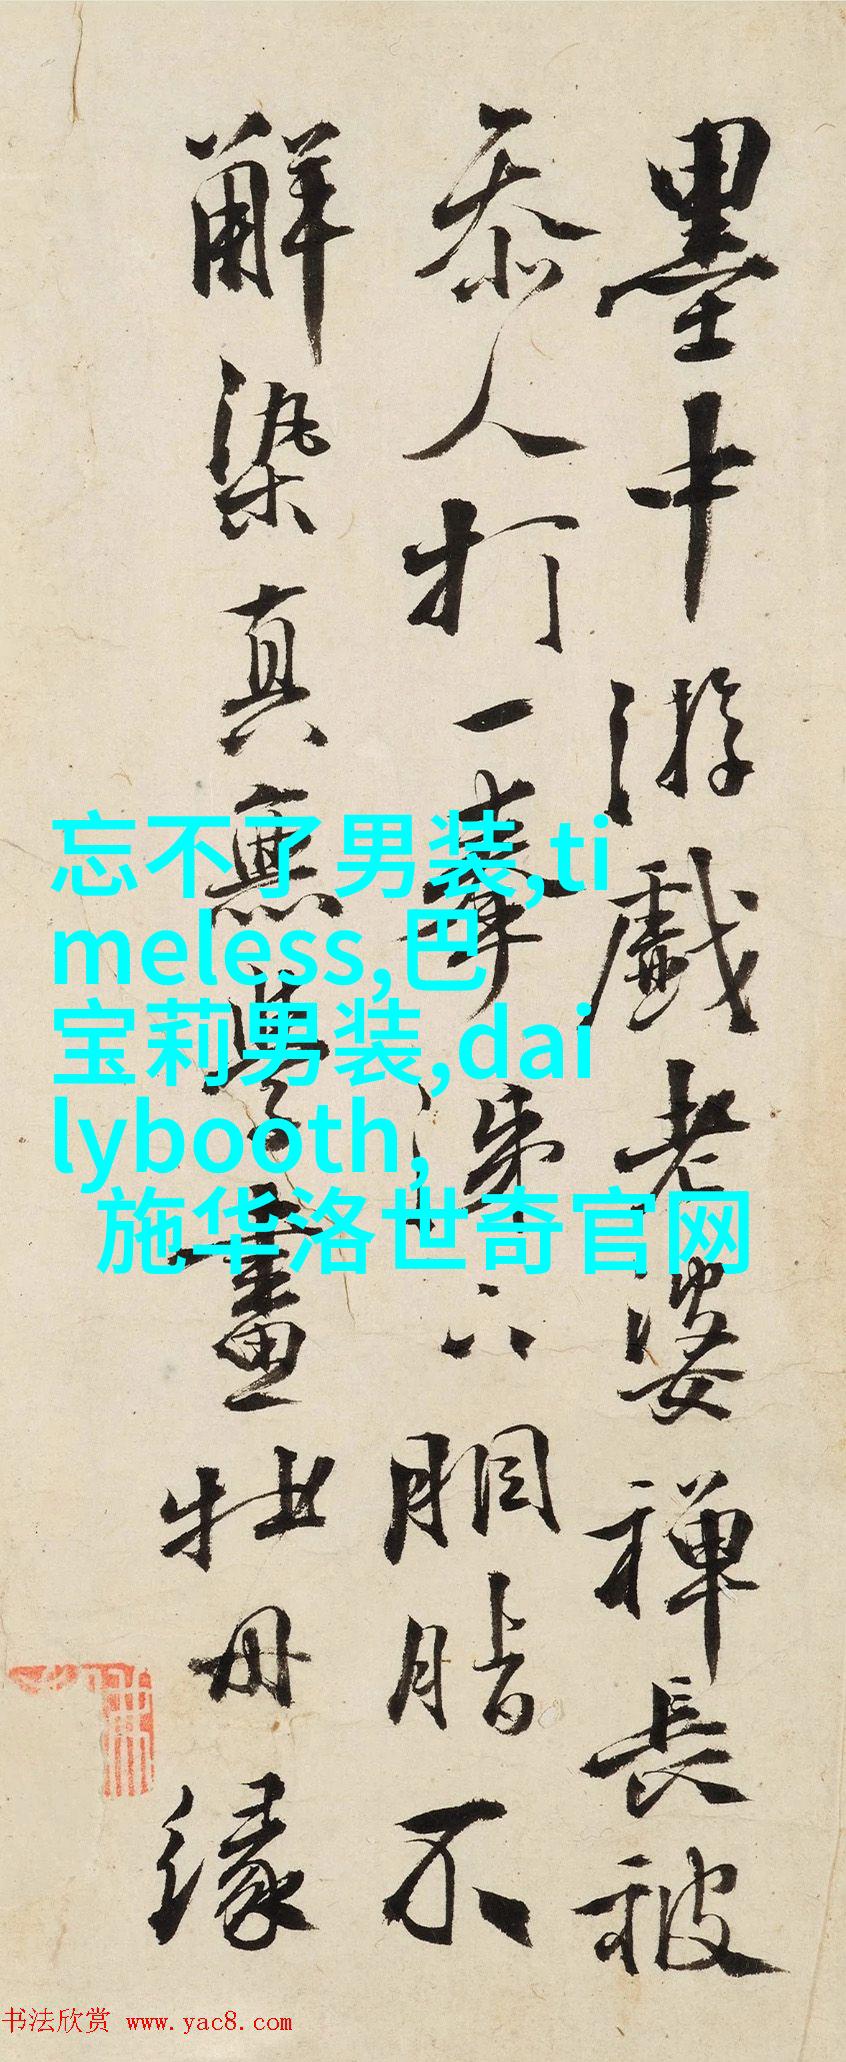 墨中游戲老婆禪長被
叅人打一拳涕下胭脂不
解染真無學畫牡丹緣
忘不了男装,ti
meless,巴
宝莉男装,dai
lybooth,
施华洛世奇官网
书法欣赏 www.yac8.com